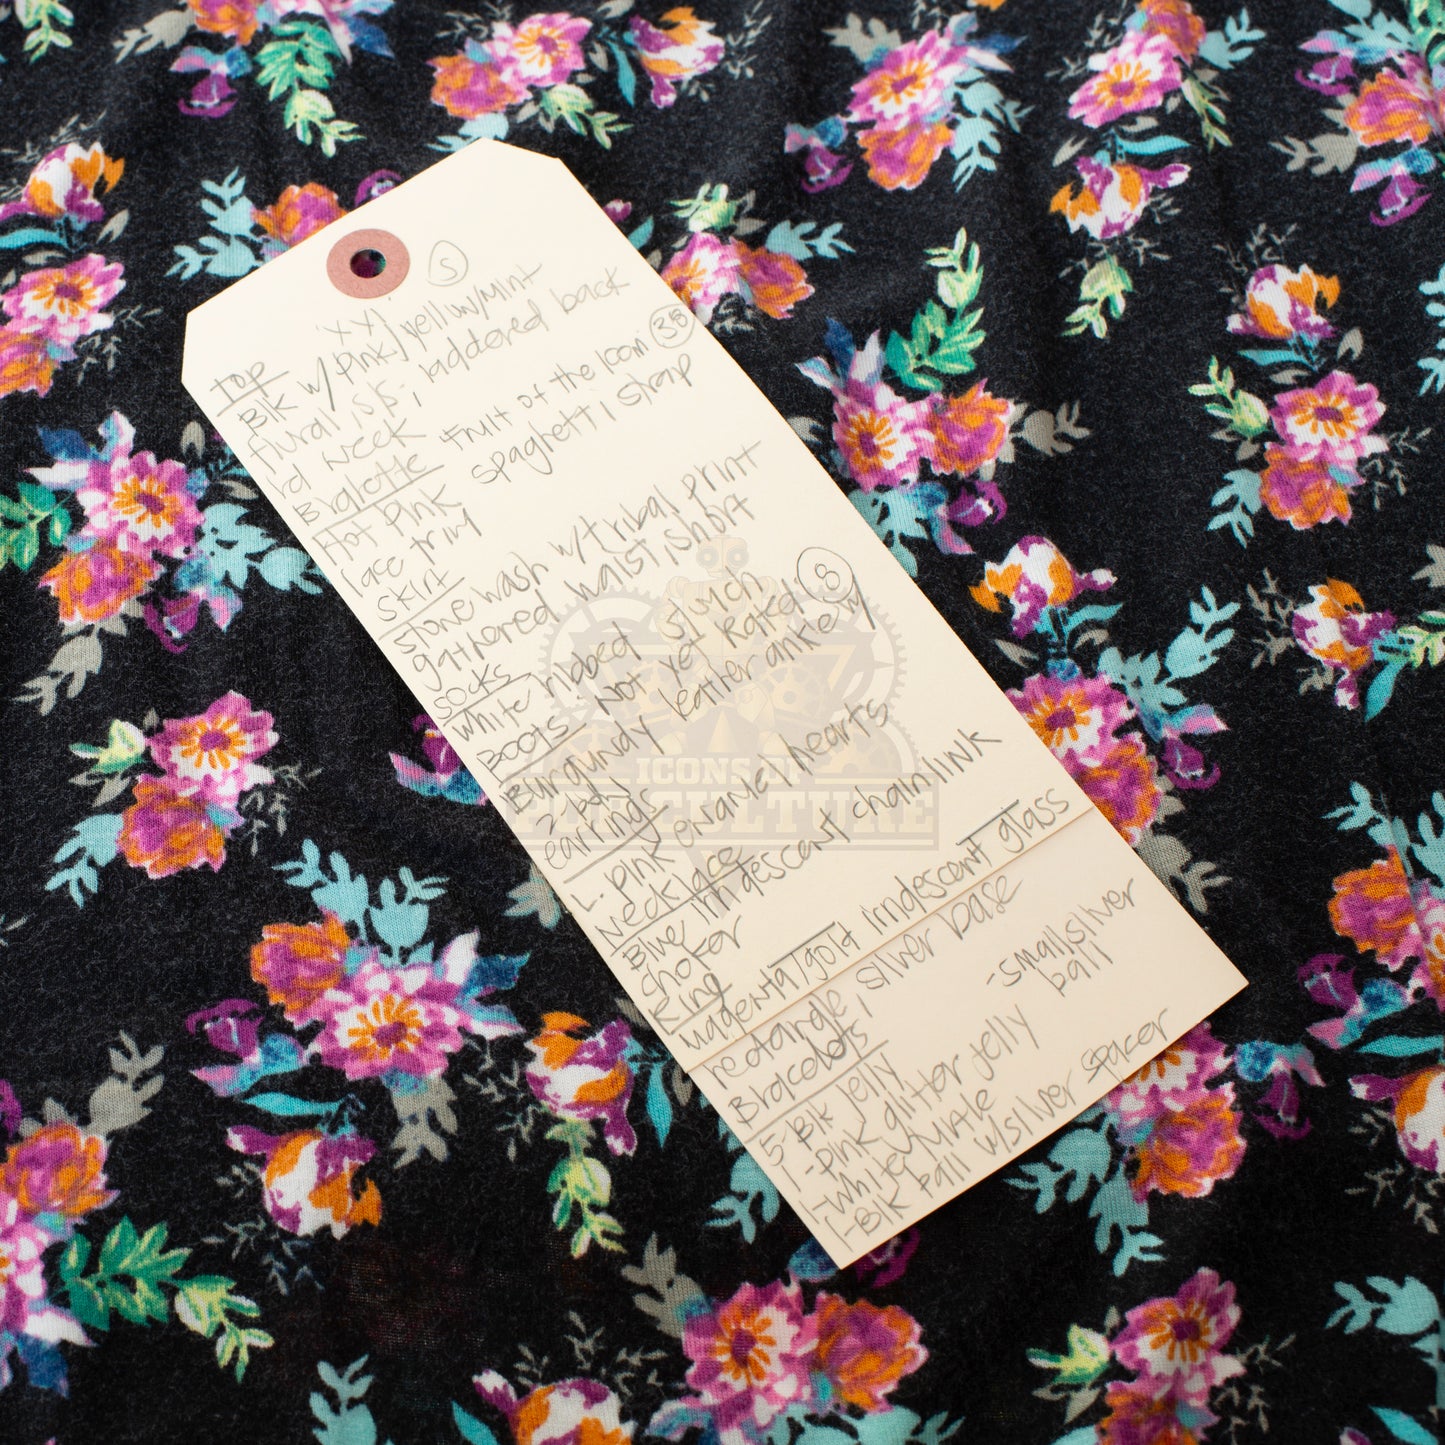 Top "XXI" S
Blk w/ Pink/yellow/Mint
floral, s/s, laddered back
rd neck
Bralette Fruit of the loom 38
Hot Pink spaghetti strap
lace trim
Skirt
Stone wash w/tribal print
gathered waist, short
Socks
White ribbed slinch
Boots Not Yet Rated 8
Burgundy leather ankle w/
earrings
L. pink enamel hearts
Necklace
Blue iridescent chainlink
choker
Ring
Magenta/gold iridescent glass
rectangle, silver base
Bracelets
5-Blk jelly -small silver
-pink glitter jelly ball
1-White/White
1-Blk ball w/silver spacer
ICONS OF
POP CULTURE